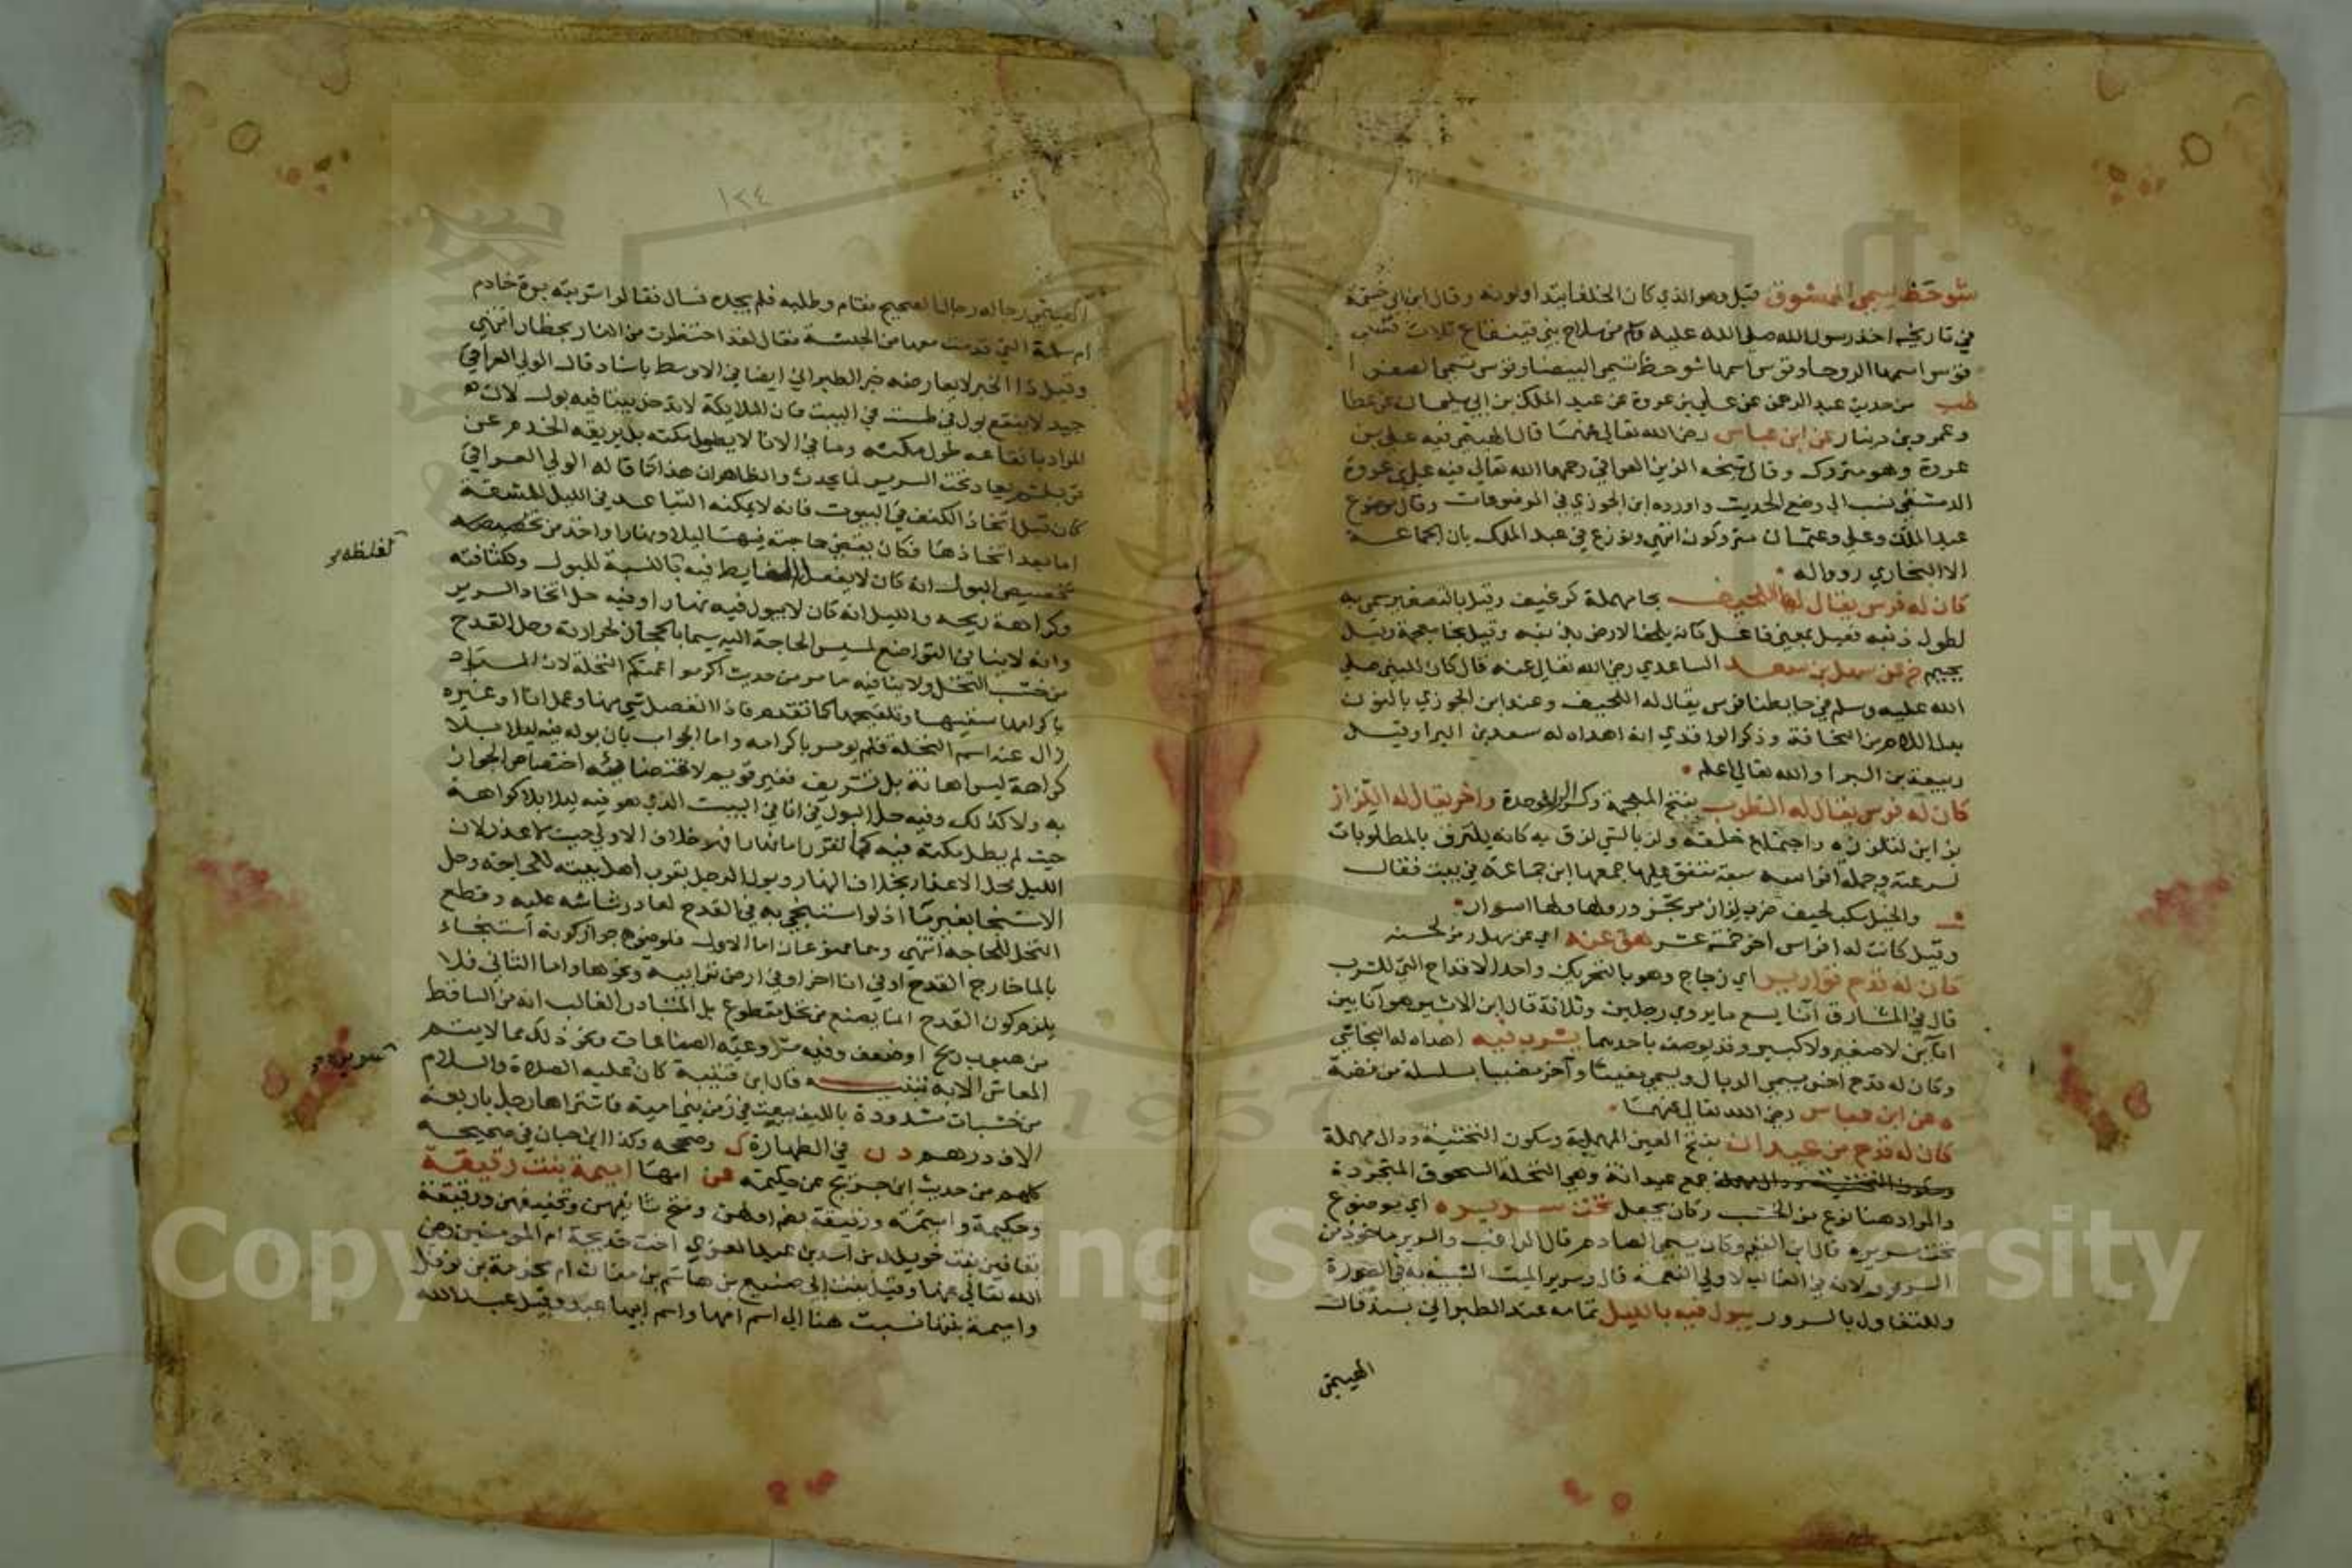 شوحط يسمى الممشوق قيل وهو الذي كان الخلفا يتداولونه وقال ابن ابي خيثمة
في تاريخه اخذ رسول الله صلى الله عليه وسلم من سلاح بني قينقاع ثلاث قسي
قوس اسمها الروحا وقوس اسمها شوحط تسمى البيضا وقوس تسمى الصفرا
طب من حديث عبد الرحمن عن علي بن عروة عن عبد الملك بن ابي سليمان عن عطا
وعمرو بن دينار عن ابن عباس رضي الله تعالى عنهما قال الهيثمي فيه علي بن
عروة وهو متروك وقال شيخه الزين العراقي رحمهما الله تعالى فيه علي بن عروة
الدمشقي نسب الى وضع الحديث واورده ابن الجوزي في الموضوعات وقال موضوع
عبد الملك وعلي وعثمان متروكون انتهى ونوزع في عبد الملك بان الجماعة
الا البخاري رووا له
كان له فرس يقال لها اللحيف بحا مهملة كرغيف وقيل بالتصغير سمي به
لطول ذنبه فعيل بمعنى فاعل كانه يلحف الارض بذنبه وقيل بخا معجمة وقيل
بجيم خ عن سهل بن سعد الساعدي رضي الله تعالى عنه قال كان للنبي صلى
الله عليه وسلم في حايطنا فرس يقال له اللحيف وعند ابن الجوزي بالنون
بدل اللام من النحافة وذكر الواقدي انه اهداه له سعد بن البرا وقيل
ربيعة بن البرا والله تعالى اعلم
كان له فرس يقال له الظرب بفتح المعجمة وكسر الرا فموحدة واخر يقال له اللزاز
لتلززه واجتماع خلقه ولز بالشي لزق به كانه يلتزق بالمطلوبات
لسرعته وجملة افراسه سبعة متفق عليها جمعها ابن جماعة في بيت فقال
والخيل سكب لحيف ظرب لزاز مرتجز ورد لها اسرار
وقيل كانت له افراس اخر خمسة عشر هق عنه اي عن سهل رمز لحسنه
كان له قدح قوارير اي زجاج وهو بالتحريك واحد الاقداح التي للشرب
قال في المشارق انا يسع ما يروي رجلين وثلاثة قال ابن الاثير هو انا بين
اناين لا صغير ولا كبير وقد يوصف باحدهما يشرب فيه اهداه له النجاشي
وكان له قدح اخر يسمى الريال ويسمى مغيثا وآخر مضببا بسلسلة من فضة
ه عن ابن عباس رضي الله تعالى عنهما
كان له قدح من عيدان بفتح العين المهملة وسكون التحتية ودال مهملة
جمع عيدانة وهي النخلة السحوق المتجردة
والمراد هنا نوع من الخشب وكان يجعل تحت سريره اي يوضع
تحت سريره قال ابن القيم وكان يسمى الصادر قال الراغب والسرير ماخوذ من
السرور لانه في الغالب لاولي النعمة قال وسرير الميت الشبيه به في الصورة
وللتفاول بالسرور يبول فيه بالليل تمامه عند الطبراني بسند قال
الهيثمي
١٢٤
الهيثمي رجاله رجال الصحيح فقام وطلبه فلم يجده فسال فقالوا شربته برة خادم
ام سلمة التي قدمت معها من الحبشة فقال لقد احتظرت من النار بحظار انتهى
وقيل ذا الخبر لا يعارضه خبر الطبراني ايضا في الاوسط باسناد قال الولي العراقي
جيد لا ينقع بول في طست في البيت فان الملايكة لا تدخل بيتا فيه بول لان
المراد بانقاعه طول مكثه وما في الانا لا يطول مكثه بل يريقه الخدم عن
قرب ثم يعاد تحت السرير لما يحدث والظاهر ان هذا كما قاله الولي العراقي
كان قبل اتخاذ الكنف في البيوت فانه لا يمكنه التباعد في الليل للمشقة
اما بعد اتخاذها فكان يقضي حاجته فيها ليلا ونهارا واخذ من تخصيصه
تخصيص البول انه كان لا يفعل الغايط فيه بالنسبة للبول ولكثافته
لغلظه
وكراهة ريحه والليل انه كان لا يبول فيه نهارا وفيه حل اتخاذ السرير
وانه لا ينافي التواضع لمسيس الحاجة اليه سيما بالحجاز لحرارته وحل القدح
من خشب النخل ولا ينافيه ما مر من حديث اكرموا عمتكم النخلة لان المراد
باكرامها سقيها وتلقيحها كما تقدم فاذا انفصل شي منها وعمل انا او غيره
زال عنه اسم النخلة فلم يومر باكرامه واما الجواب بان بوله فيه ليلا
كراهة ليس اهانة بل تشريف فغير قويم لاقتضائه اختصاص الجواز
به ولا كذلك وفيه حل البول في انا في البيت الذي هو فيه ليلا بلا كراهة
حيث لم يطل مكثه فيه كما تقرر اما نهارا فهو خلاف الاولى حيث لا عذر لان
الليل محل الاعذار بخلاف النهار وبول الرجل بقرب اهل بيته للحاجة وحل
الاستنجا بغير ما اذ لو استنجى به في القدح لعاد رشاشه عليه وقطع
النخل للحاجة انتهى وهما ممنوعان اما الاول فلوضوح جواز كونه استنجاء
بالما خارج القدح او في انا اخر او في ارض ترابية ونحوها واما الثاني فلا
يلزم كون القدح انما يصنع من نخل مقطوع بل المتبادر الغالب انه من الساقط
من هبوب ريح او ضعف وفيه مشروعية الصناعات ونحو ذلك مما لا يتم
المعاش الا به تنبيه قال ابن قتيبة كان عليه الصلاة والسلام
سريره
من خشبات مشدودة بالليف بيعت في زمن بني امية فاشتراها رجل باربعة
الاف درهم د ن في الطهارة ك وصححه وكذا ابن حبان في صحيحه
كلهم من حديث ابن جريج عن حكيمة عن امها اميمة بنت رقيقة
وحكيمة واميمة ورقيقة بضم اولهن وفتح ثانيهن وتخفيفهن ورقيقة
بقافين بنت خويلد بن اسد بن عبد العزى اخت خديجة ام المومنين رضي
الله تعالى عنها وقيل بنت ابي صيفي بن هاشم بن مناف ام مخرمة بن نوفل
واميمة بنتها نسبت هنا الى اسم امها واسم ابيها عبد وقيل عبد الله
Copyright © King Saud University
1957